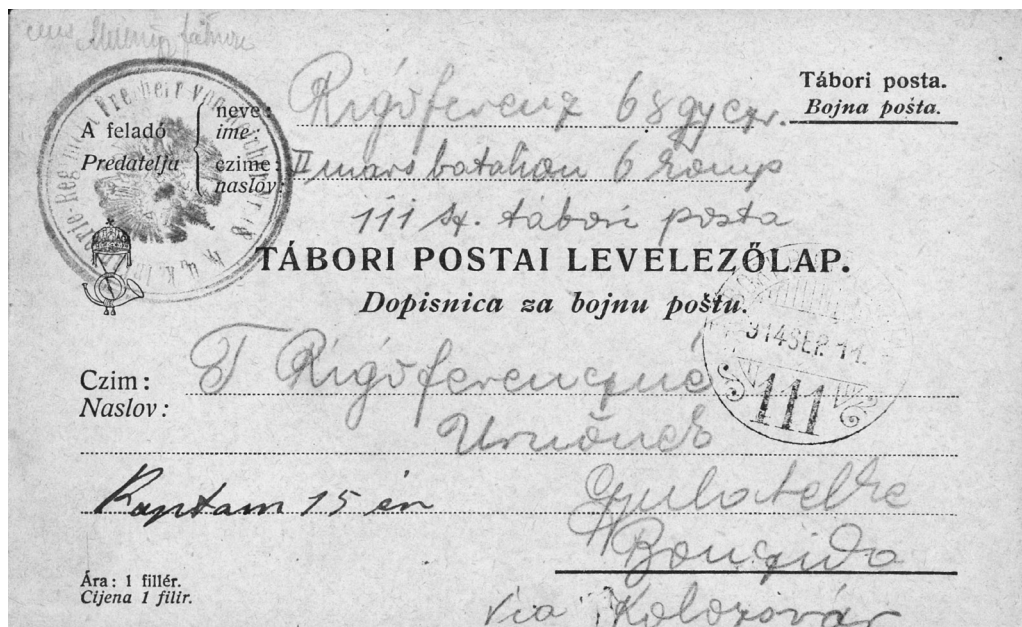 Tábori posta.
Bojna pošta.
A feladó
Predatelja
neve:
ime
Rigóferenz 68 gy ezr.
czime:
naslov:
II mars batalion 6 komp
111 sz. tábori posta
TÁBORI POSTAI LEVELEZŐLAP.
Dopisnica za bojnu poštu.
914 SEP. 11.
111
Czim:
Naslov:
T Rigóferencné
Urnőnek
Kaptam 15 én
Gyulatelke
Bonczida
Ára: 1 fillér.
Cijena 1 filir.
via Kolozsvár